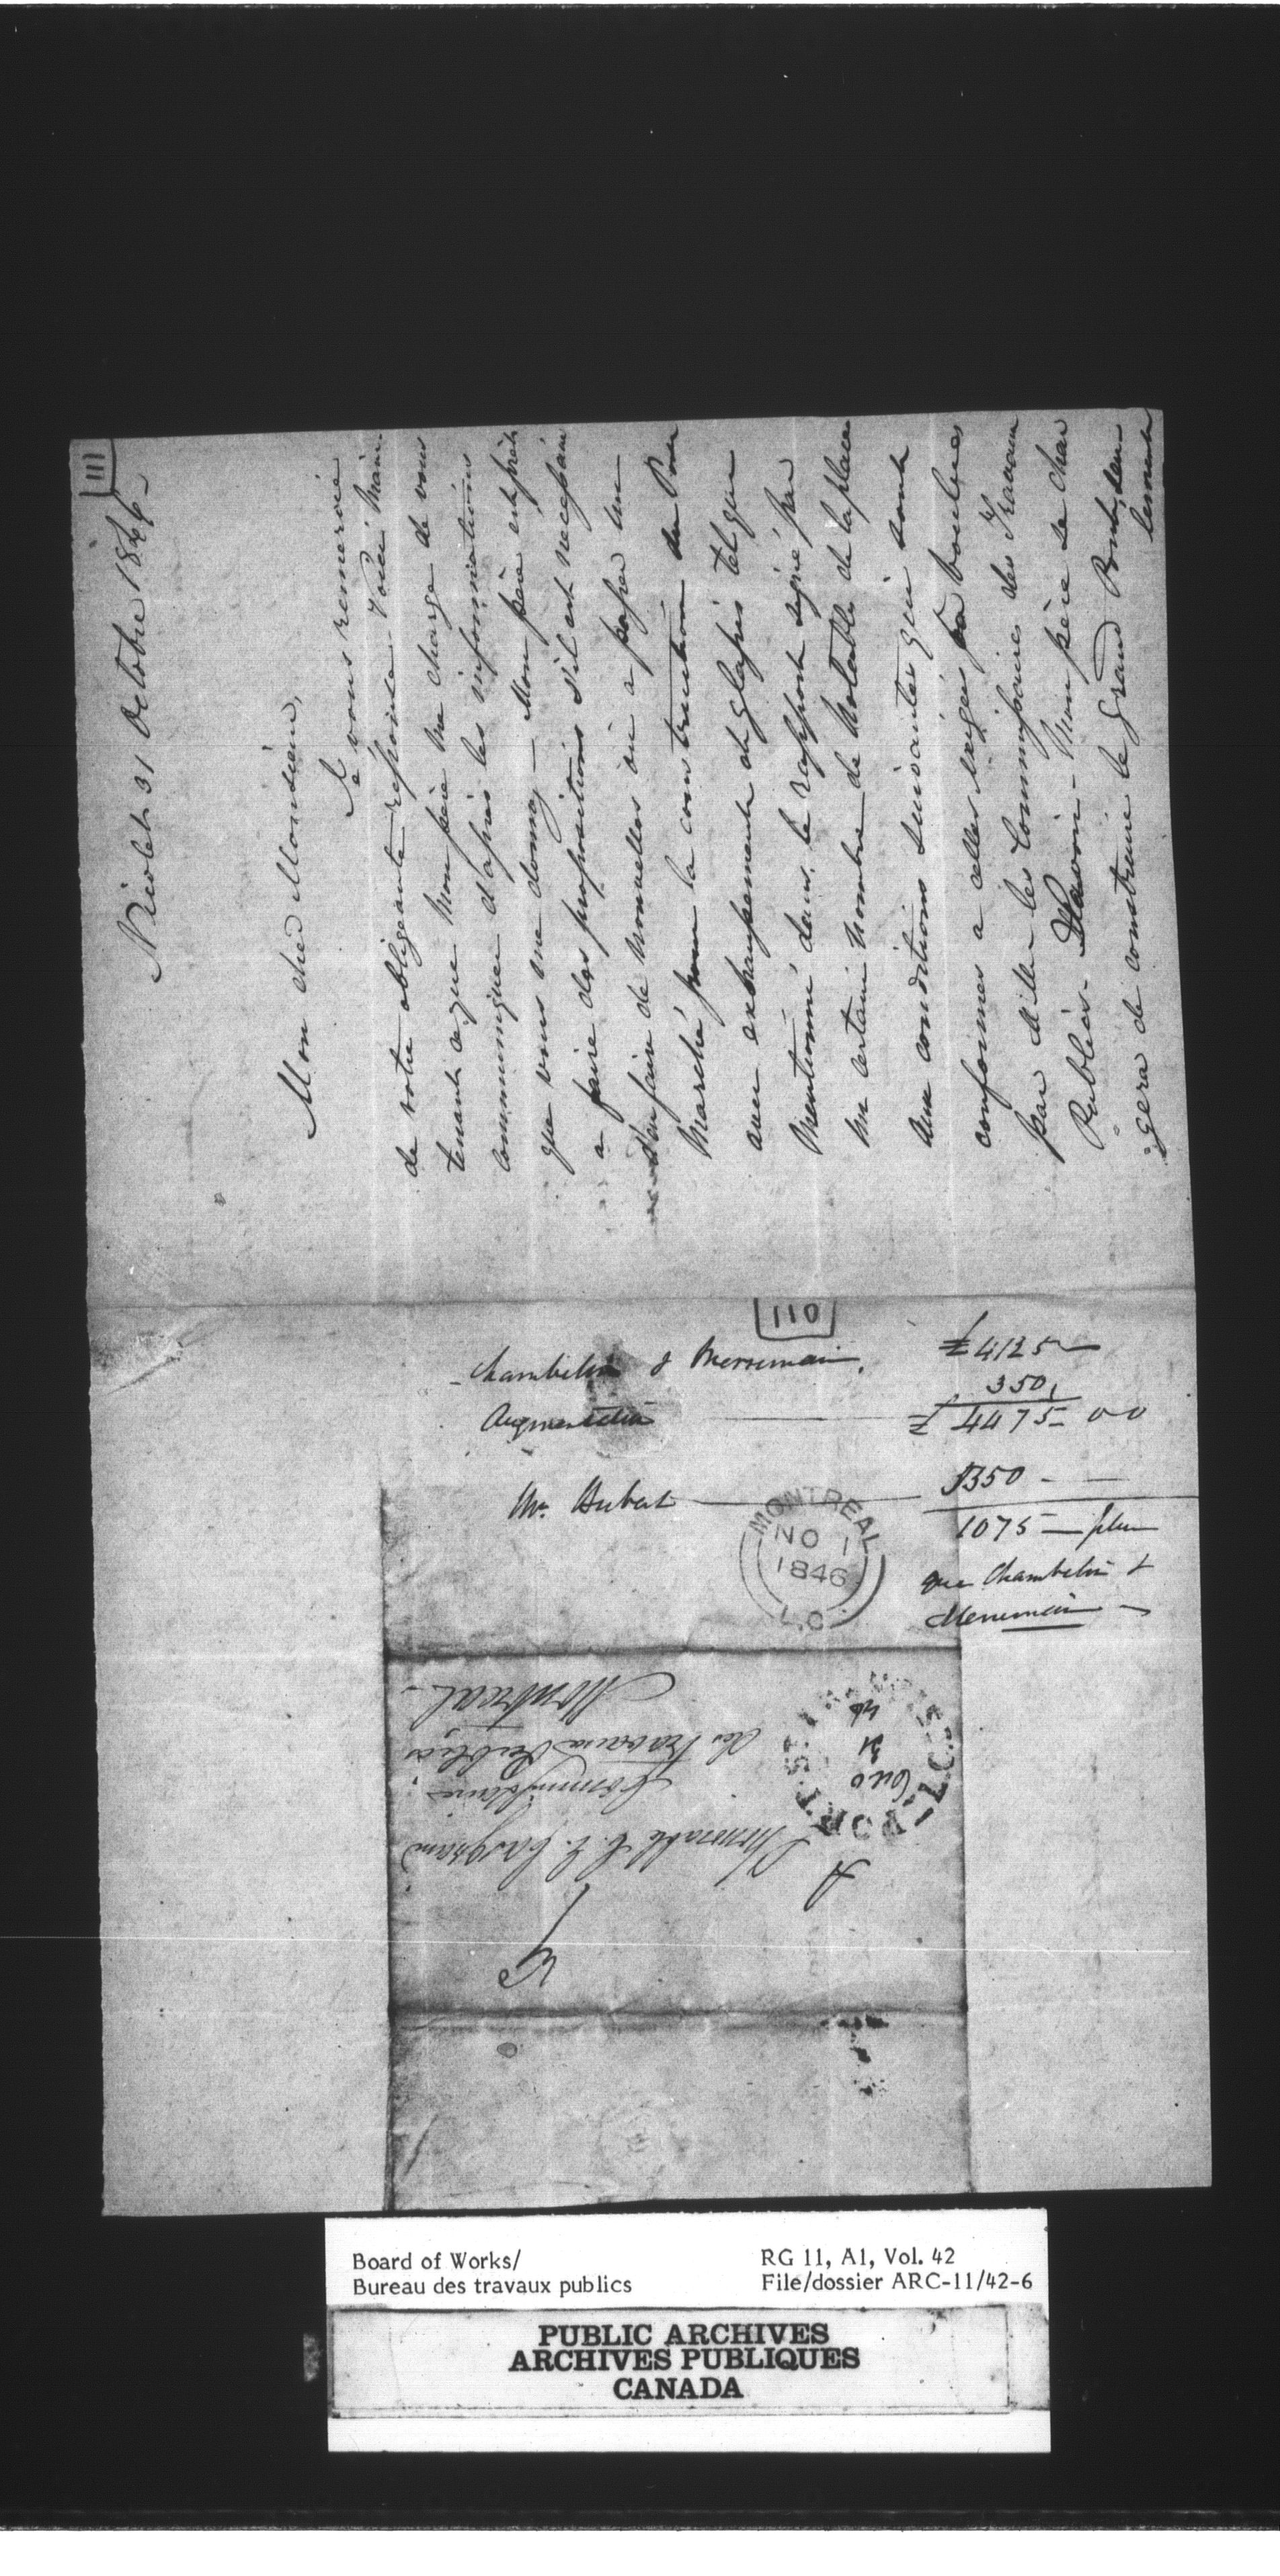 111
Nicolet 31 Octobre 1846 -
Mon cher Monsieur,
Je vous remercie
de votre obligeante réponse. Voici Main-
tenant ce que Mon père me charge de vous
communiquer d'après les informations
que vous me donnez - Mon père est prêt
a faire des propositions s'il est nécessaire
d'en faire de nouvelles ou a passer un
Marché pour la construction du Pont
avec exhaussement et glassis tel que
Mentionné dans le rapport signé par
un certain nombre de Notables de la place
aux conditions suivantes qui sont
conformes a celles exigées voulues
par M.M. les Commissaires des Travaux
Publics. Savoir - Mon père se char
gera de construire le grand Pont, seu
lement
110
Chambelin & Merriman. £4125 -
350,
Augmentation £ 4475 - 00
Mr. Hubert 5350 - -
1075 - plus
que Chambelin &
Merriman -
MONTREAL
NO 1
1846
L.C.
A
L'Honorable C. E. Casgrain
Commissaire
des Travaux Publics
Montreal -
PORT ST. L.C.
31
Board of Works/
Bureau des travaux publics
RG 11, A1, Vol. 42
File/dossier ARC-11/42-6
PUBLIC ARCHIVES
ARCHIVES PUBLIQUES
CANADA